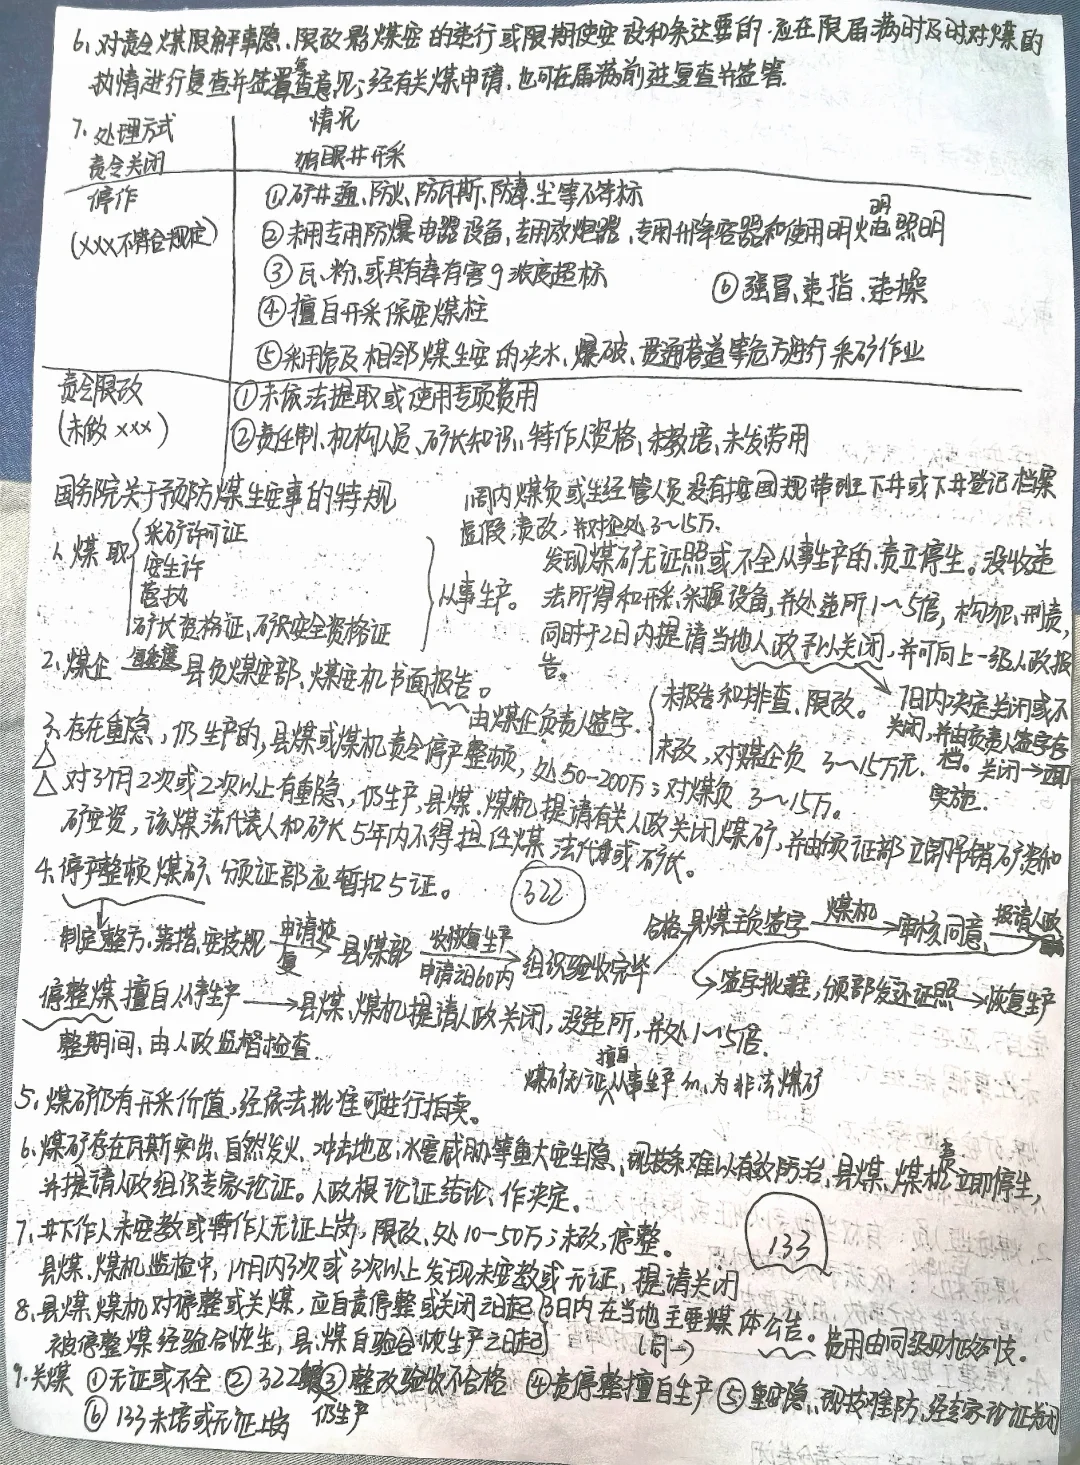 6、对责令煤限解事隐、限改影煤安的进行或限期使安设和条达要的.应在限届满时及时对煤的
执情进行复查并签署复查意见;经有关煤申请,也可在届满前进复查并签署.
7、处理方式 情况
责令关闭 独眼井开采
停作
(XXX不符合规定)
①矿井通、防火、防瓦斯、防毒、尘等不符标
②未用专用防爆电器设备、专用放炮器、专用升降容器和使用明火明电照明
③瓦、粉、或其有毒有害g浓度超标
⑥强冒、违指、违操
④擅自开采保安煤柱
⑤采用危及相邻煤生安的决水、爆破、贯通巷道等危方进行采矿作业
责令限改
(未做xxx)
①未依法提取或使用专项费用
②责任制、机构人员、矿长知识、特作人资格、未教培、未发劳用
国务院关于预防煤生安事的特规
1周内煤负或生经管人员没有按国规带班下井或下井登记档案
虚假,责改,并对企处3~15万.
1、煤取
采矿许可证
安生许
营执
矿长资格证、矿长安全资格证
从事生产。
发现煤矿无证照或不全从事生产的,责立停生。没收违
法所得和开采、采掘设备,并处违所1~5倍,构犯,刑责,
同时于2日内提请当地人政予以关闭,并可向上一级人政报
告。
2、煤企 每季度 县负煤安部、煤安机书面报告。
由煤企负责人签字.
未报告和排查、限改。
未改,对煤企负 3~15万元.
7日内决定关闭或不
关闭,并由负责人签字存
档。关闭→立即
实施.
3、存在重隐、仍生产的,县煤或煤机责令停产整顿,处50-200万;对煤负 3~15万。
△
△ 对3个月2次或2次以上有重隐、仍生产,县煤、煤机提请有关人政关闭煤矿,并由颁证部立即吊销矿资和
矿安资,该煤法代表人和矿长5年内不得担任煤法代表或矿长。
322
4、停产整顿煤矿、颁证部应暂扣5证。
制定整方、落措、安技规 申请恢复→ 县煤部 收恢复生产申请之日60内→ 组织验收完毕
合格 县煤主负签字 煤机→ 审核同意、报请人政
→签字批准,颁部发还证照→恢复生产
停整煤擅自从事生产→县煤、煤机提请人政关闭,没违所,并处1~5倍.
整期间、由人政监督检查.
煤矿无证擅自从事生产的、为非法煤矿
5、煤矿仍有开采价值,经依法批准可进行拍卖。
6、煤矿存在瓦斯突出、自然发火、冲击地区、水害威胁等重大安生隐、现技条难以有效防治、县煤、煤机责立即停生,
并提请人政组织专家论证。人政根论证结论、作决定。
7、井下作人未安教或特作人无证上岗,限改、处10-50万;未改,停整。
133
县煤、煤机监检中,1个月内3次或3次以上发现未安教或无证,提请关闭
8、县煤、煤机对停整或关煤,应自责停整或关闭之日起3日内在当地主要媒体公告。
被停整煤经验合恢生,县、煤自验合恢生产之日起 (同→) 费用由同级财政列支。
9、关煤 ①无证或不全 ②322 ③整改验收不合格 仍生产 ④责停整擅自生产 ⑤重安隐、现技难防、经专家论证关闭
⑥133未培或无证上岗